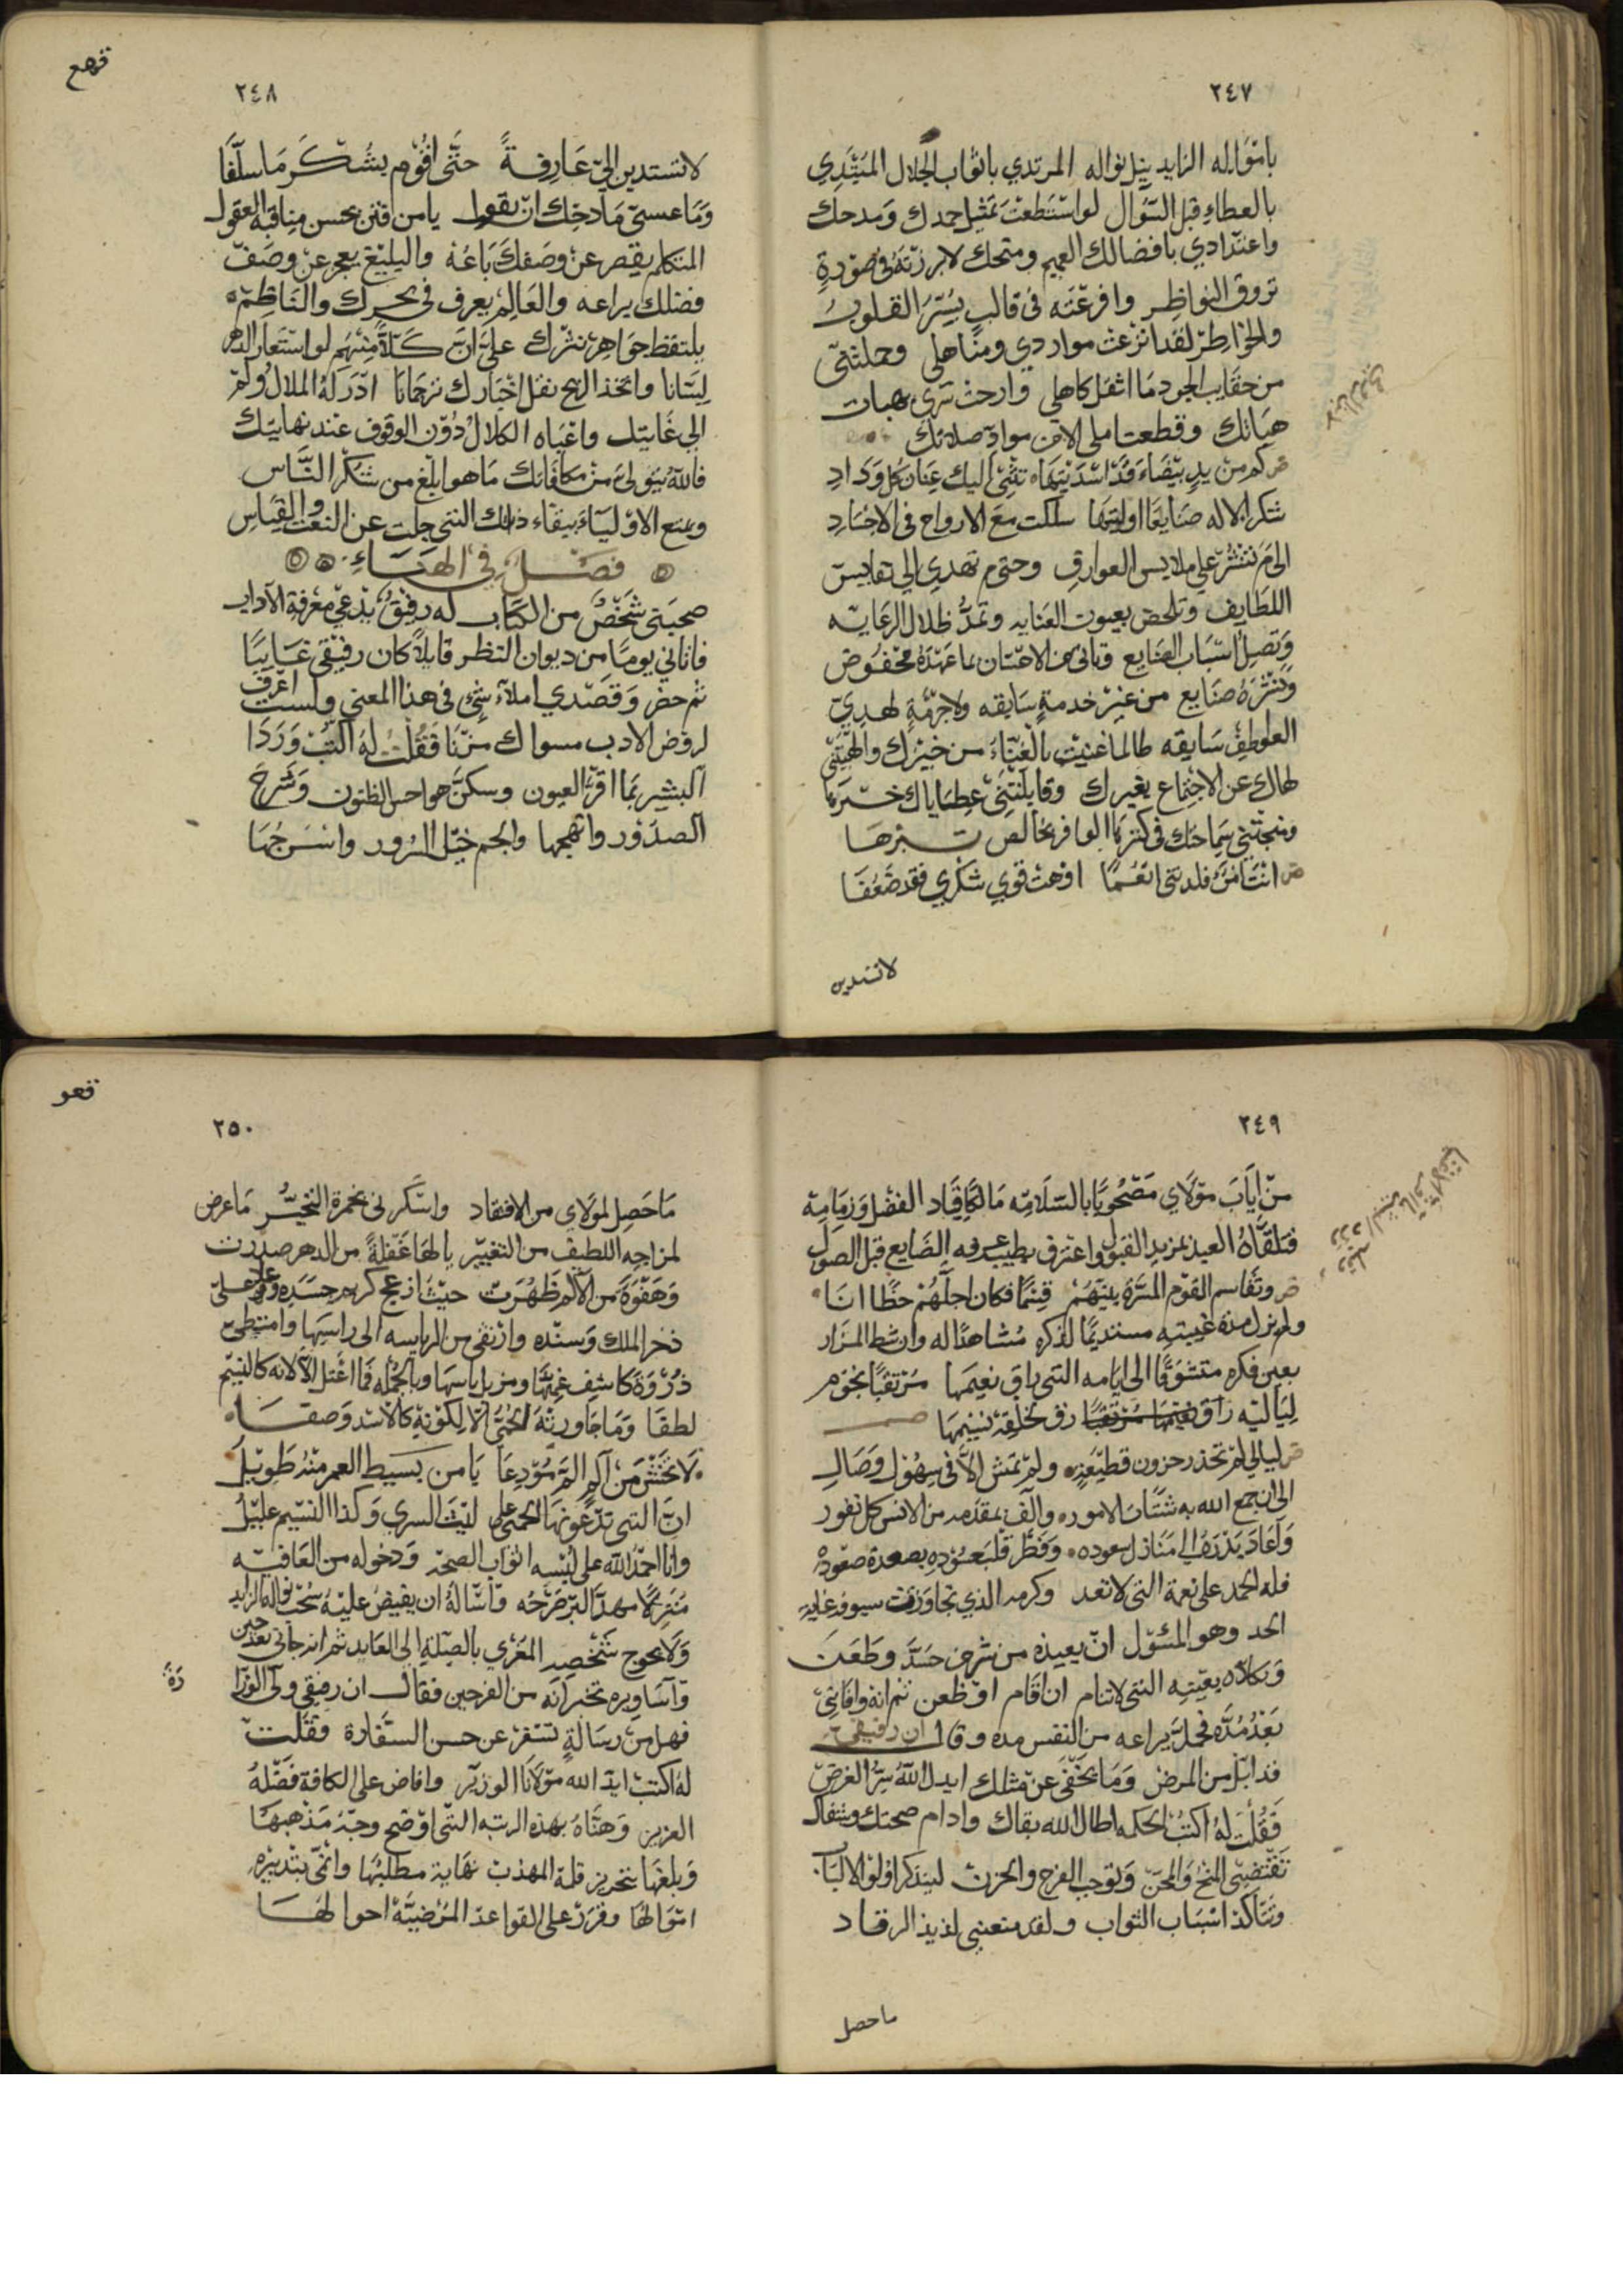 ٢٤٧
بامواله الزايد بنيل نواله المرتدي باثواب الجلال المبتدي
بالعطاء قبل السؤال لو استطعت تمثيل حمدك ومدحك
واعتدادي بافضالك العميم ومنحك لابرزته في صورة
تروق النواظر وافرغته في قالب يسر القلوب
والخواطر لقد اترعت مواردي ومناهلي وحملتني
من حقايب الجود ما اثقل كاهلي وارحت ترى هبات
هباتك وقطعت املي الا من مواد صلاتك
كم من يد بيضاء قد اسديتها تثني اليك عنان كل وداد
شكر الاله صنايعا اوليتها سلكت مع الارواح في الاجساد
الى م تنشر علي ملابس العوارف وحتى م تهدي الي نفايس
اللطايف وتلحظ بعيون العنايه وتمد ظلال الرعايه
وتصل اسباب الصنايع وتاتي من الاحسان بما عهده محفوظ
ونشره ضايع من غير خدمة سابقه ولا حرمة لهدي
العواطف سايقه طالما غنيت بالغناء من خيرك والهتني
لهاك عن الاجتماع بغيرك وقابلتني عطاياك خسرتها
ومنحتني سماحتك في كنزها الوافر بخالص تبرها
انت امرؤ قلدتني نعما اوهت قوى شكري فقد ضعفا
لا تسدين
٢٤٨
لا تسدين الي عارفة حتى اقوم بشكر ما سلفا
وما عسى مادحك ان يقول يا من افتن بحسن مناقبه العقول
المتكلم يقصر عن وصفك باعه والبليغ يعجز عن وصف
فضلك يراعه والعالم يغرف في بحرك والناظم
يلتقط جواهر نثرك على ان كلا منهم لو استعار الدهر
لسانا واتخذ الريح نقل اخبارك ترجمانا ادركه الملال ولم
الي غايتك واعياه الكلال دون الوقوف عند نهايتك
فالله يتولى من مكافاتك ما هو ابلغ من شكر الناس
ويمتع الاولياء ببقاء ذاتك التي جلت عن النعت والقياس
فصل في الهناء
صحبني شخص من الكتاب له رفيق يدعي معرفة الاداب
فاتاني يوما من ديوان النظر قايلا كان رفيقي غايبا
ثم حضر وقصدي املاء شي في هذا المعنى ولست اعرف
لروض الادب سواك مزنا فقلت له اكتب وردا
البشير بما اقر العيون وسكن هواجس الظنون وشرح
الصدور وابهجها والجم خيل السرور واسرجها
٢٤٩
من اياب مولاي مصحوبا بالسلامه مالكا قياد الفضل وزمامه
فتلقاه العبد بمزيد القبول واعترف بطيب عرفه الضايع قبل الوصول
وتقاسم القوم المسرة بينهم قسما فكان اجلهم حظا انا
ولم يزل مدة غيبته مستديما لذكره مشاهدا له وان شط المزار
بعين فكره متشوقا الى ايامه التي راق نعيمها مرتقبا نجوم
لياليه راق بخلقه نسيمها
ليالي لم تحذر حزون قطيعة ولم تمش الا في سهول وصال
الى ان جمع الله به شتات الامور والف بمقدمه من الانس كل نفور
واعاد بدره الى منازل سعوده وفطر قلب عدوه بصعدة صعوده
فله الحمد على نعمة التي لا تعد وكرمه الذي تجاوزت سيوف غايته
الحد وهو المسؤل ان يعيذه من شر من حسد وطعن
وكلاه بعينه التي لا تنام ان اقام او ظعن ثم انه وافاني
بعد مده فحل يراعه من النقس مده وقال ان رفيقي
قد ابل من المرض وما يخفى عن مثلك ايدك الله سر الغرض
فقلت له اكتب الحكمه اطال الله بقاك وادام صحتك وشفاك
تقتضي المنح والمحن وتوجب الفرح والحزن ليتذكر اولوا الالباب
وتتاكد اسباب الثواب ولقد منعني لذيذ الرقاد
ما حصل
٢٥٠
ما حصل لمولاي من الافتقاد واسكرني بخمرة التحير ما عرض
لمزاجه اللطيف من التغيير يا لها غفلة من الدهر صدرت
وهفوة من الالم ظهرت حيث ازعج كريم جسده وعلا على
ذخر الملك وسنده وارتقى من الرياسه الى راسها وامتطى
ذروة كاشف غمتها ومزيل باسها وبالجمله فما اعتل الا لانه كالنسيم
لطفا وما جاورته الحمى الا لكونه كالاسد وصفا
لا تخش من الم الم مودعا يا من بسيط العمر منه طويل
ان التي تدعونها الحمى على ليث السري وكذا النسيم عليل
وانا احمد الله على لبسه اثواب الصحه ودخوله من العافيه
منزلا مهد البر صرحه واساله ان يفيض عليه سحب نواله الزايد
ولا يحوج شخصه المغري بالصلة الى العايد ثم انه جاني بعد حين
واساريره تخبر انه من الفرحين فقال ان رفيقي ولي الوزارة
فهل من رسالة تسفر عن حسن السفارة فقلت
له اكتب ايد الله مولانا الوزير وافاض على الكافة فضله
العزيز وهناه بهذه الرتبه التي اوضح وجه مذهبها
وبلغها بتحرير قلمه المهذب نهاية مطلبها وانمى بتدبيره
اموالها وقرر على القواعد المرضية احوالها